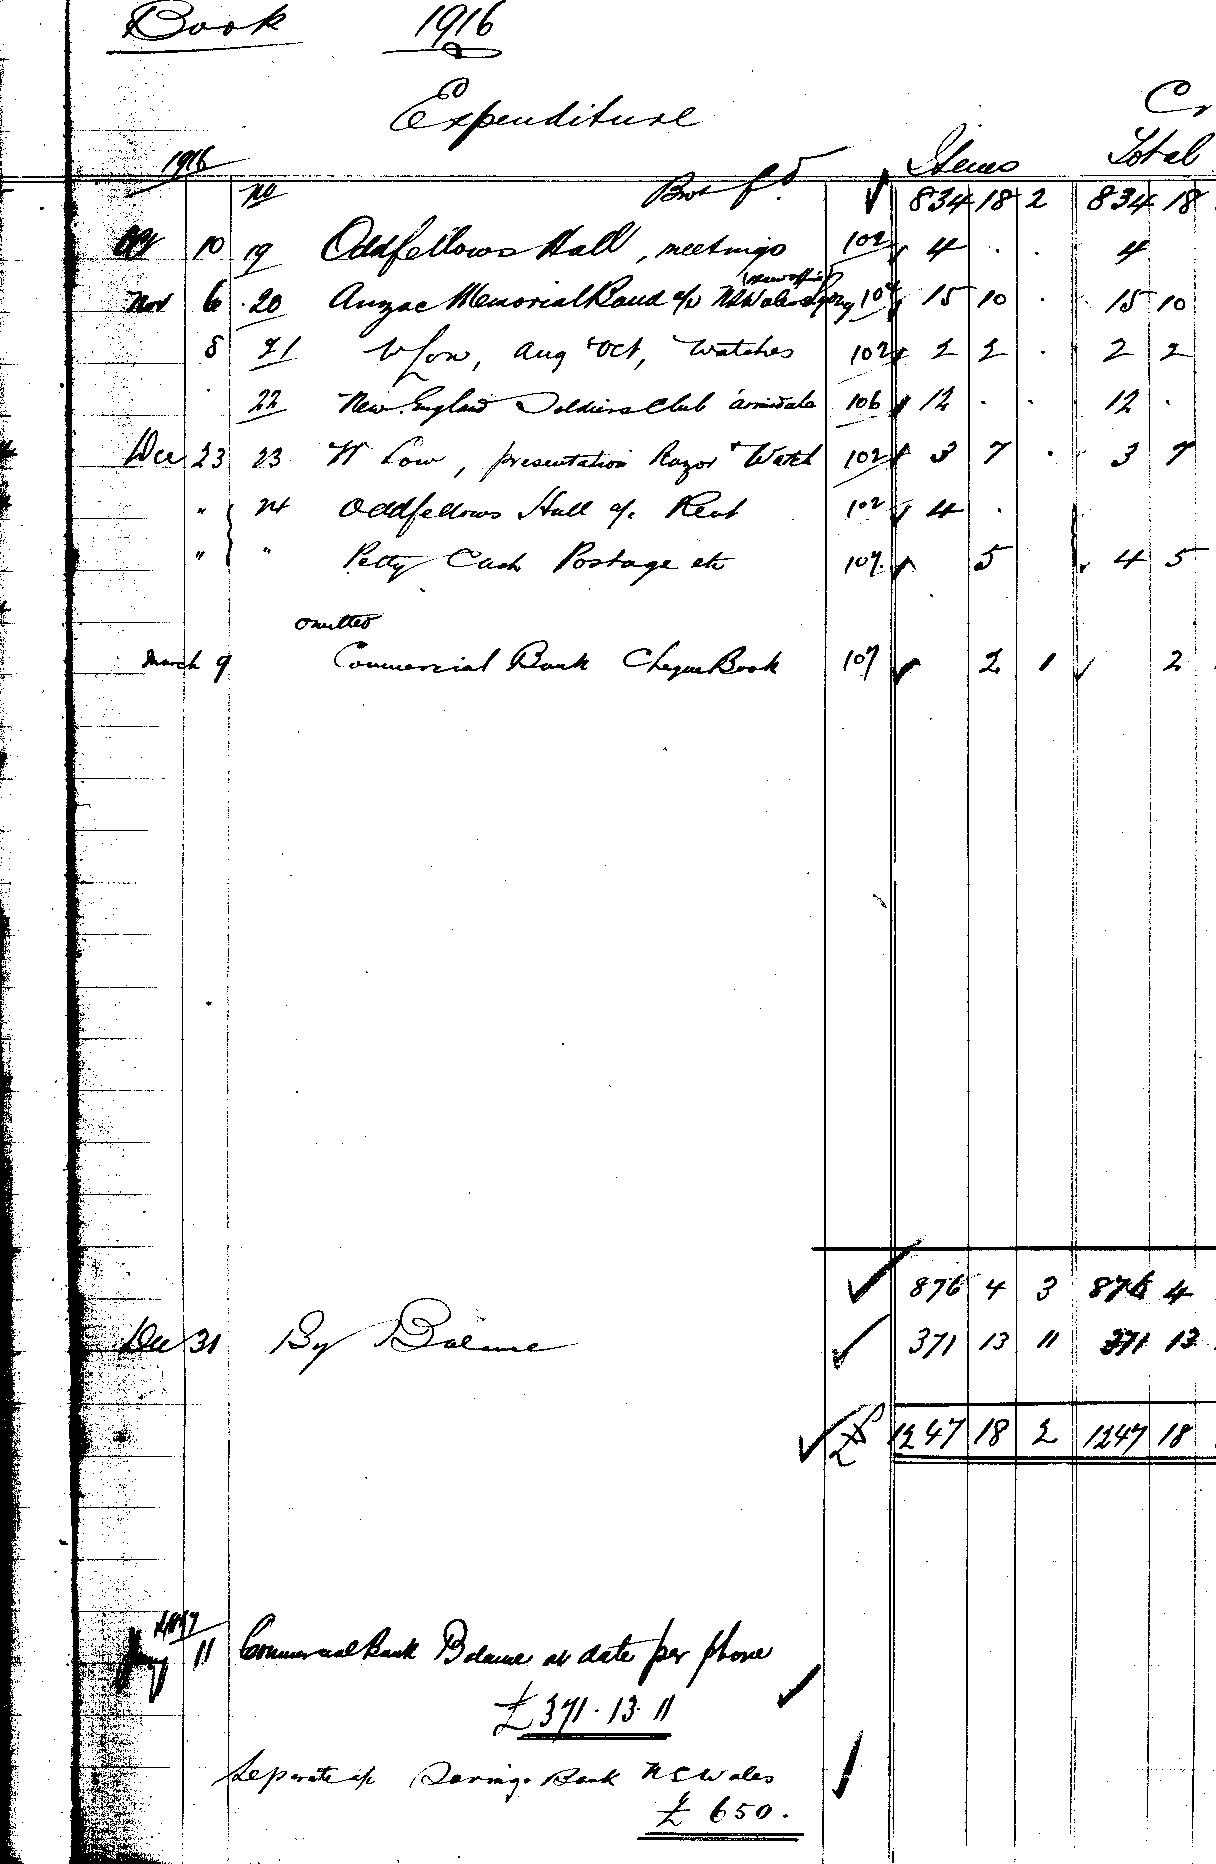 Book 1916
Expenditure Cr
1916 Items Total
No Brot fd. 834 18 2 834 18
10 19 Oddfellows Hall, meetings 102 4 . . 4
Nov 6 20 Anzac Memorial Band a/c NSWales 15 10 . 15 10
8 21 Low, Aug Oct, Watches 102 2 2 . 2 2
22 New England Soldiers Club Armidale 106 12 . . 12 .
Dec 23 23 W Low, presentation Razor + Watch 102 3 7 . 3 7
" 24 Oddfellows Hall a/c Rent 102 4 .
" " Petty Cash Postage etc 107 5 4 5
omitted
March 9 Commercial Bank Cheque Book 107 2 1 2
876 4 3 876 4
Dec 31 By Balance 371 13 11 371 13
£ 1247 18 2 1247 18
1917
Jany 11 Commercial Bank Balance at date per phone
£371.13.11
Separate a/c Savings Bank NSWales
£ 650.